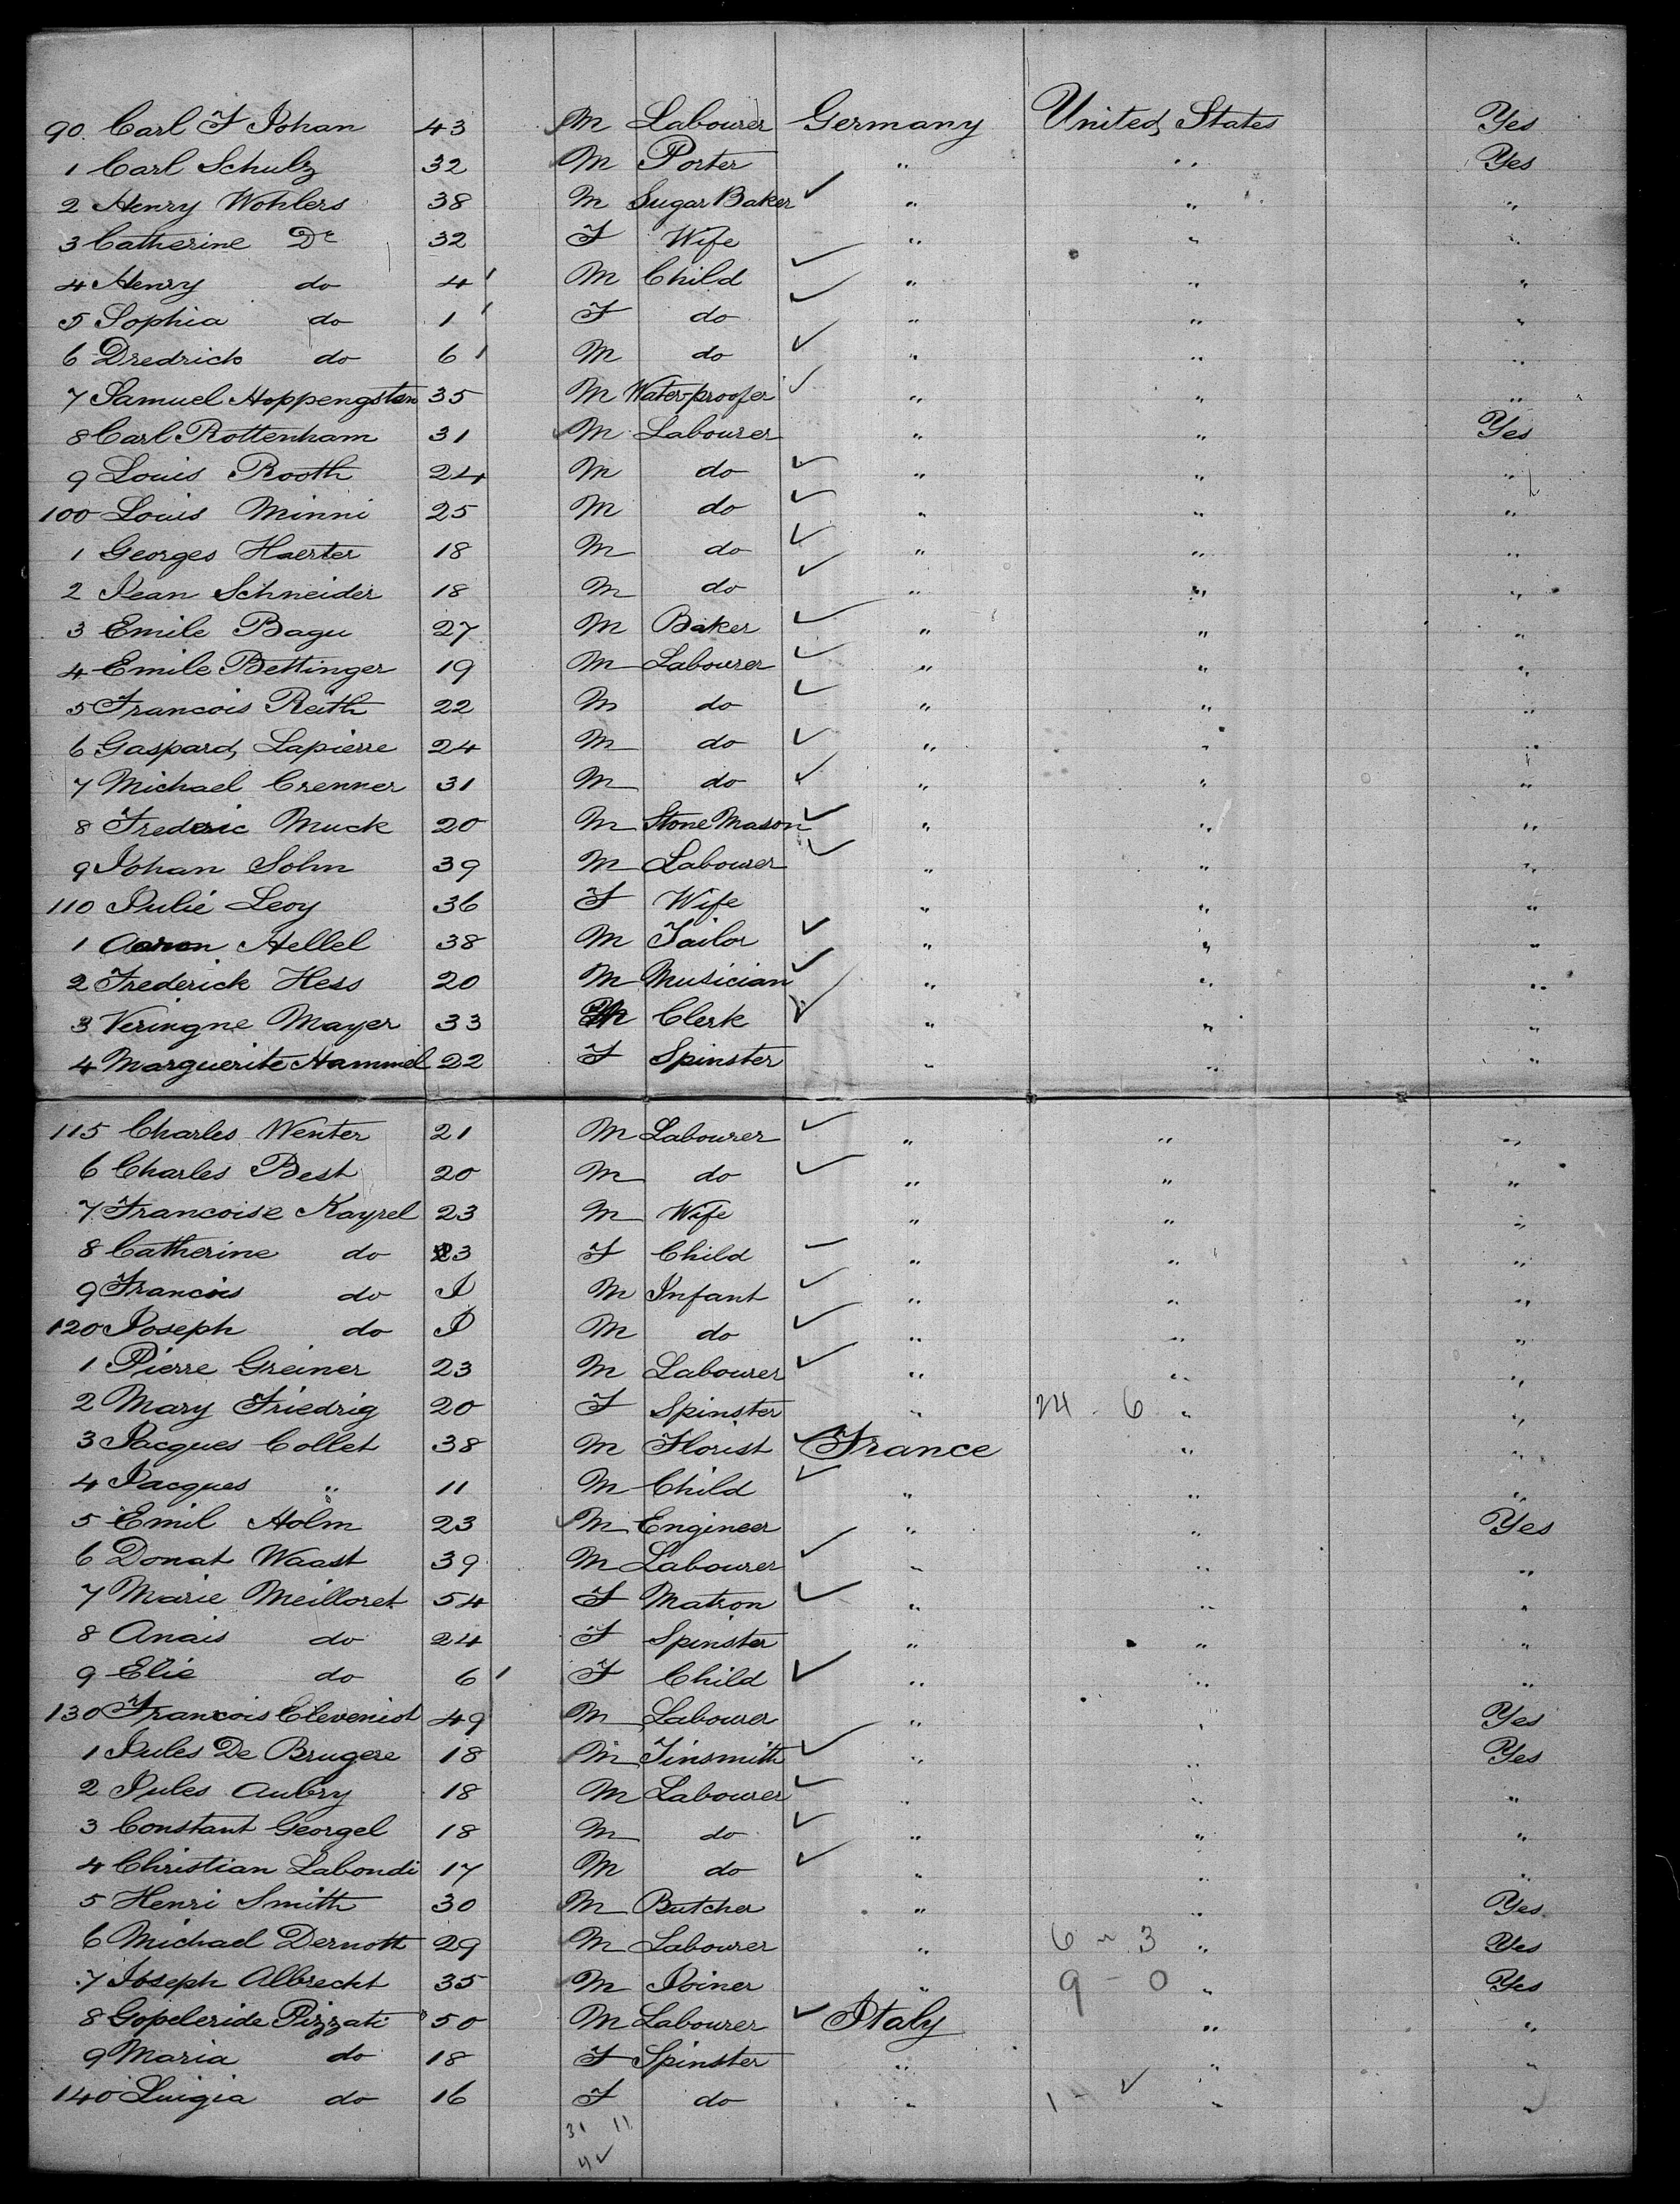 90. Carl F Johan 43 M Labourer Germany United States Yes
1 Carl Schulz 32 M Porter " " Yes
2 Henry Wohlers 38 M Sugar Baker ✓ " " "
3 Catherine Do 32 F Wife " " "
4 Henry do 4 M Child ✓ " " "
5 Sophia do 1 F do ✓ " " "
6 Dredrich do 6 M do ✓ " " "
7 Samuel Hoppengsten 35 M Waterproofer ✓ " " "
8 Carl Rottenham 31 M Labourer " " Yes
9 Louis Rooth 24 M do ✓ " " "
100 Louis Minni 25 M do ✓ " " "
1 Georges Haerter 18 M do ✓ " " "
2 Jean Schneider 18 M do ✓ " " "
3 Emile Bagu 27 M Baker ✓ " " "
4 Emile Bettinger 19 M Labourer ✓ " " "
5 Francois Reith 22 M do ✓ " " "
6 Gaspard Lapierre 24 M do ✓ " " "
7 Michael Crenner 31 M do ✓ " " "
8 Frederic Muck 20 M Stone Mason ✓ " " "
9 Johan Sohn 39 M Labourer ✓ " " "
110 Julie Levy 36 F Wife " " "
1 Aaron Hellel 38 M Tailor ✓ " " "
2 Frederick Hess 20 M Musician ✓ " " "
3 Veringne Mayer 33 M Clerk ✓ " " "
4 Marguerite Hammel 22 F Spinster " " "
115 Charles Wenter 21 M Labourer ✓ " " "
6 Charles Best 20 M do ✓ " " "
7 Francoise Kayrel 23 M Wife " " "
8 Catherine do 23 F Child ✓ " " "
9 Francois do I M Infant ✓ " " "
120 Joseph do I M do ✓ " " "
1 Pierre Greiner 23 M Labourer ✓ " " "
2 Mary Friedrig 20 F Spinster " 24 - 6 " "
3 Jacques Collet 38 M Florist ✓ France " "
4 Jacques " 11 M Child ✓ " " "
5 Emil Holm 23 M Engineer " " Yes
6 Donat Waast 39 M Labourer ✓ " " "
7 Marie Meilloret 54 F Matron ✓ " " "
8 Anais do 24 F Spinster " " "
9 Elie do 6 F Child ✓ " " "
130 Francois Cleveniot 49 M Labourer " " Yes
1 Jules De Brugere 18 M Tinsmith ✓ " " Yes
2 Jules Aubry 18 M Labourer ✓ " " "
3 Constant Georgel 18 M do ✓ " " "
4 Christian Labondi 17 M do ✓ " " "
5 Henri Smith 30 M Butcher " " Yes
6 Michael Dernott 29 M Labourer " 6 - 3 " Yes
7 Joseph Albrecht 35 M Joiner " 9 - 0 " Yes
8 Gopeleride Pizzati 50 M Labourer ✓ Italy " "
9 Maria do 18 F Spinster " " "
140 Luigia do 16 F do " 1 - ✓ " "
31 11